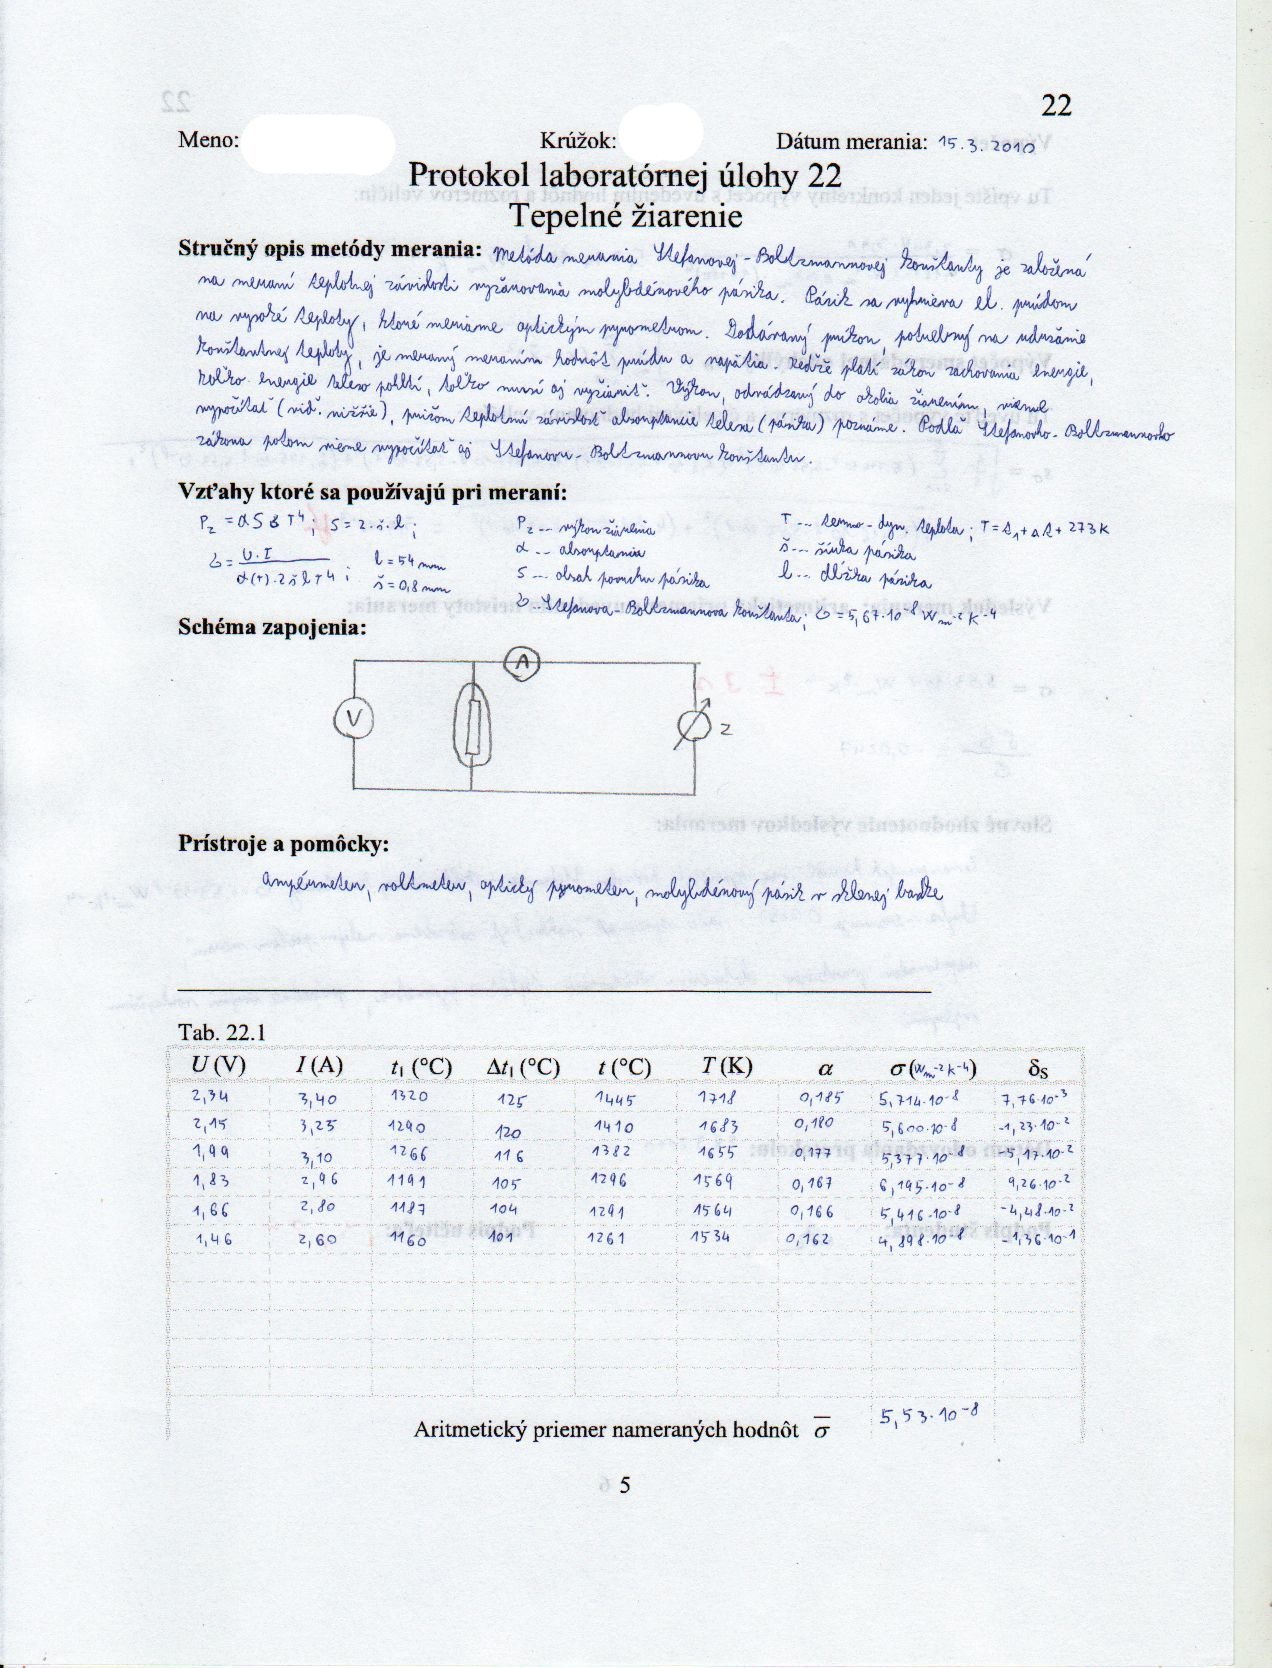 22
Meno: Krúžok: Dátum merania: 15.3.2010
Protokol laboratórnej úlohy 22
Tepelné žiarenie
Stručný opis metódy merania: Metóda merania Stefanovej-Boltzmannovej konštanty je založená
na meraní teplotnej závislosti vyžarovania molybdénového pásika. Pásik sa vyhrieva el. prúdom
na vysoké teploty, ktoré meriame optickým pyrometrom. Dodávaný príkon, potrebný na udržanie
konštantnej teploty, je meraný meraním hodnôt prúdu a napätia. Keďže platí zákon zachovania energie,
koľko energie teleso pohltí, toľko musí aj vyžiariť. Výkon, odvádzaný do okolia žiarením, vieme
vypočítať (viď. nižšie), pričom teplotnú závislosť absorptancie telesa (pásika) poznáme. Podľa Stefanovho-Boltzmannovho
zákona potom vieme vypočítať aj Stefanovu-Boltzmannovu konštantu.
Vzťahy ktoré sa používajú pri meraní:
Pz = αSσT⁴, S = 2.š.l; Pz ... výkon žiarenia T ... termo-dyn. teplota; T = t₁+Δt+273K
σ = U.I / α(T).2šlT⁴; l = 54mm α ... absorptancia š ... šírka pásika
š = 0,8mm S ... obsah povrchu pásika l ... dĺžka pásika
σ ... Stefanova-Boltzmannova konštanta; σ = 5,67.10⁻⁸ Wm⁻²K⁻⁴
Schéma zapojenia:
A
V Z
Prístroje a pomôcky:
Ampérmeter, voltmeter, optický pyrometer, molybdénový pásik v sklenej banke
Tab. 22.1
U (V) I (A) t₁ (°C) Δt₁ (°C) t (°C) T (K) α σ (Wm⁻²K⁻⁴) δs
2,34 3,40 1320 125 1445 1718 0,185 5,714.10⁻⁸ 7,76.10⁻³
2,15 3,25 1290 120 1410 1683 0,180 5,600.10⁻⁸ -1,23.10⁻²
1,99 3,10 1266 116 1382 1655 0,177 5,377.10⁻⁸ -5,17.10⁻²
1,83 2,96 1191 105 1296 1569 0,167 6,195.10⁻⁸ 9,26.10⁻²
1,66 2,80 1187 104 1291 1564 0,166 5,416.10⁻⁸ -4,48.10⁻²
1,46 2,60 1160 101 1261 1534 0,162 4,898.10⁻⁸ -1,36.10⁻¹
Aritmetický priemer nameraných hodnôt σ̅ 5,53.10⁻⁸
5